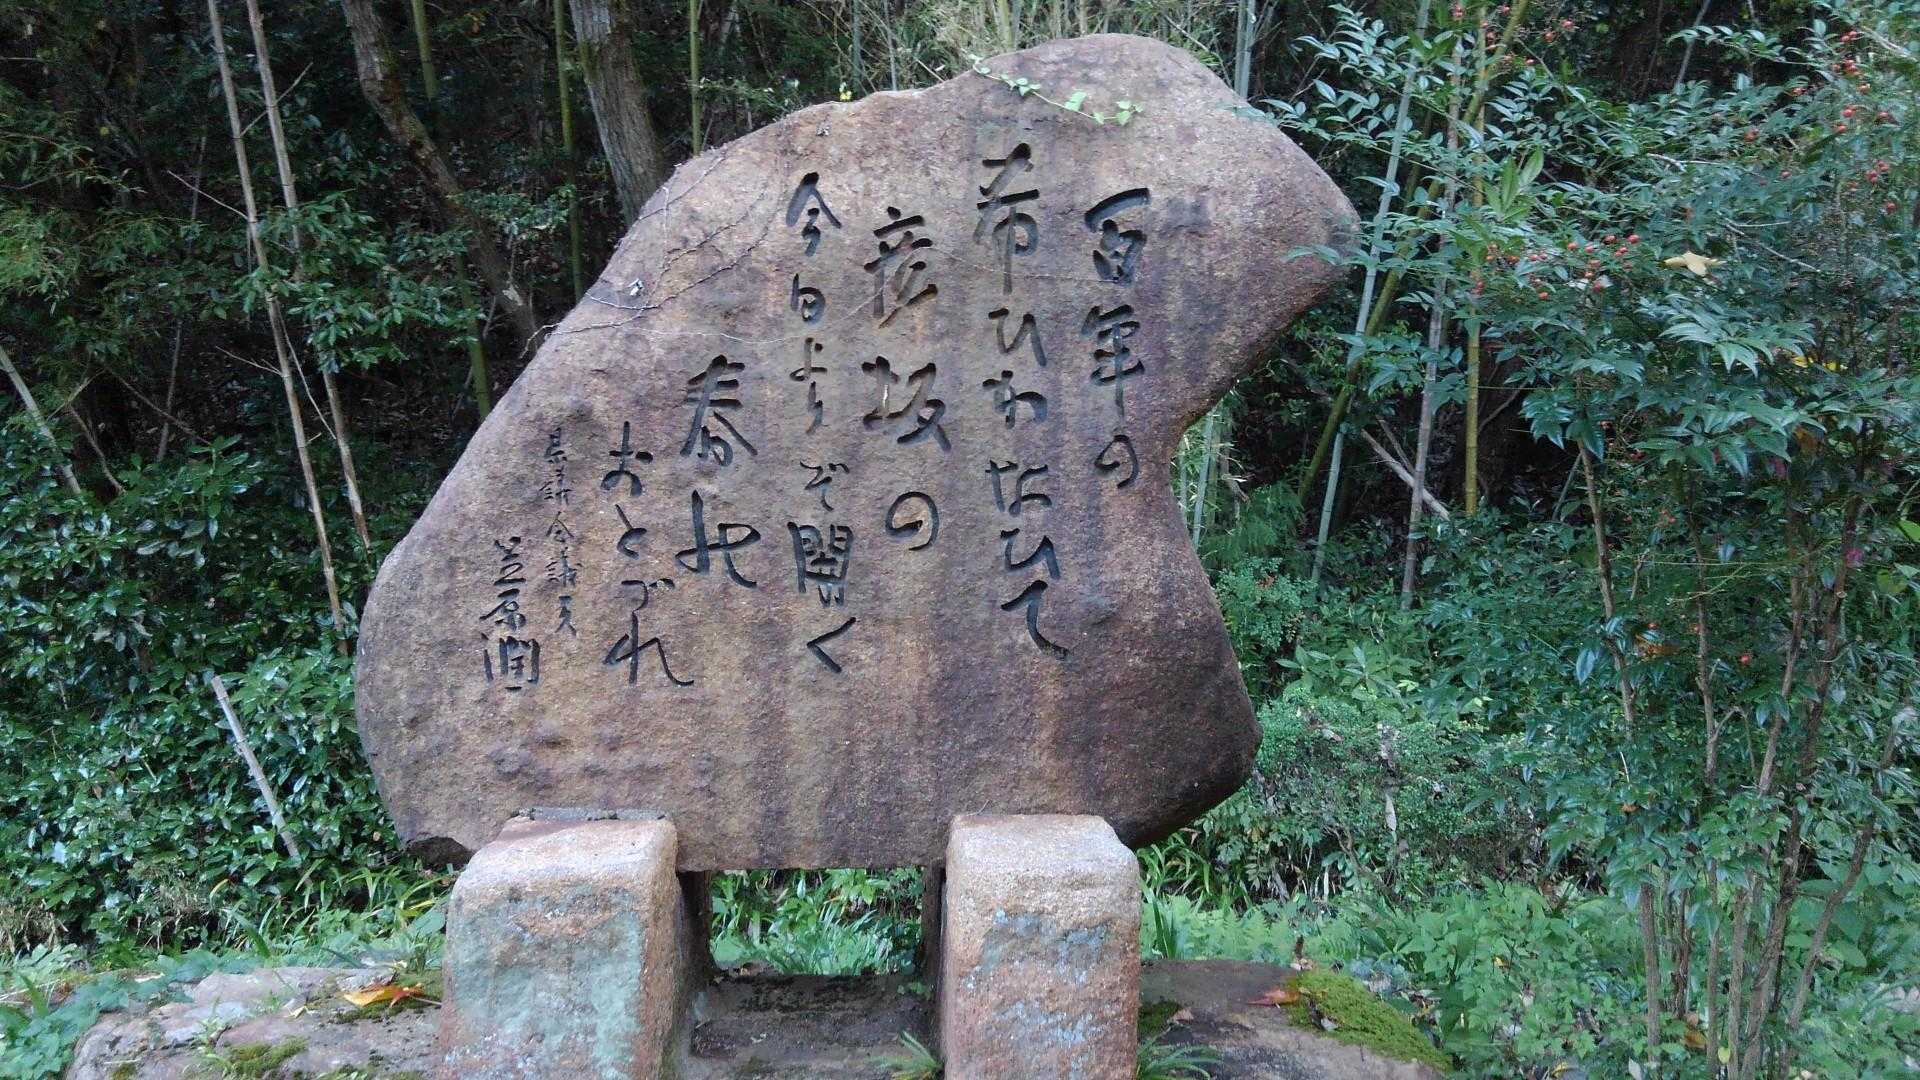 百年の
希ひかなひて
彦坂の
今日よりぞ開く
春の
おとづれ
県議会議員
笠原潤一